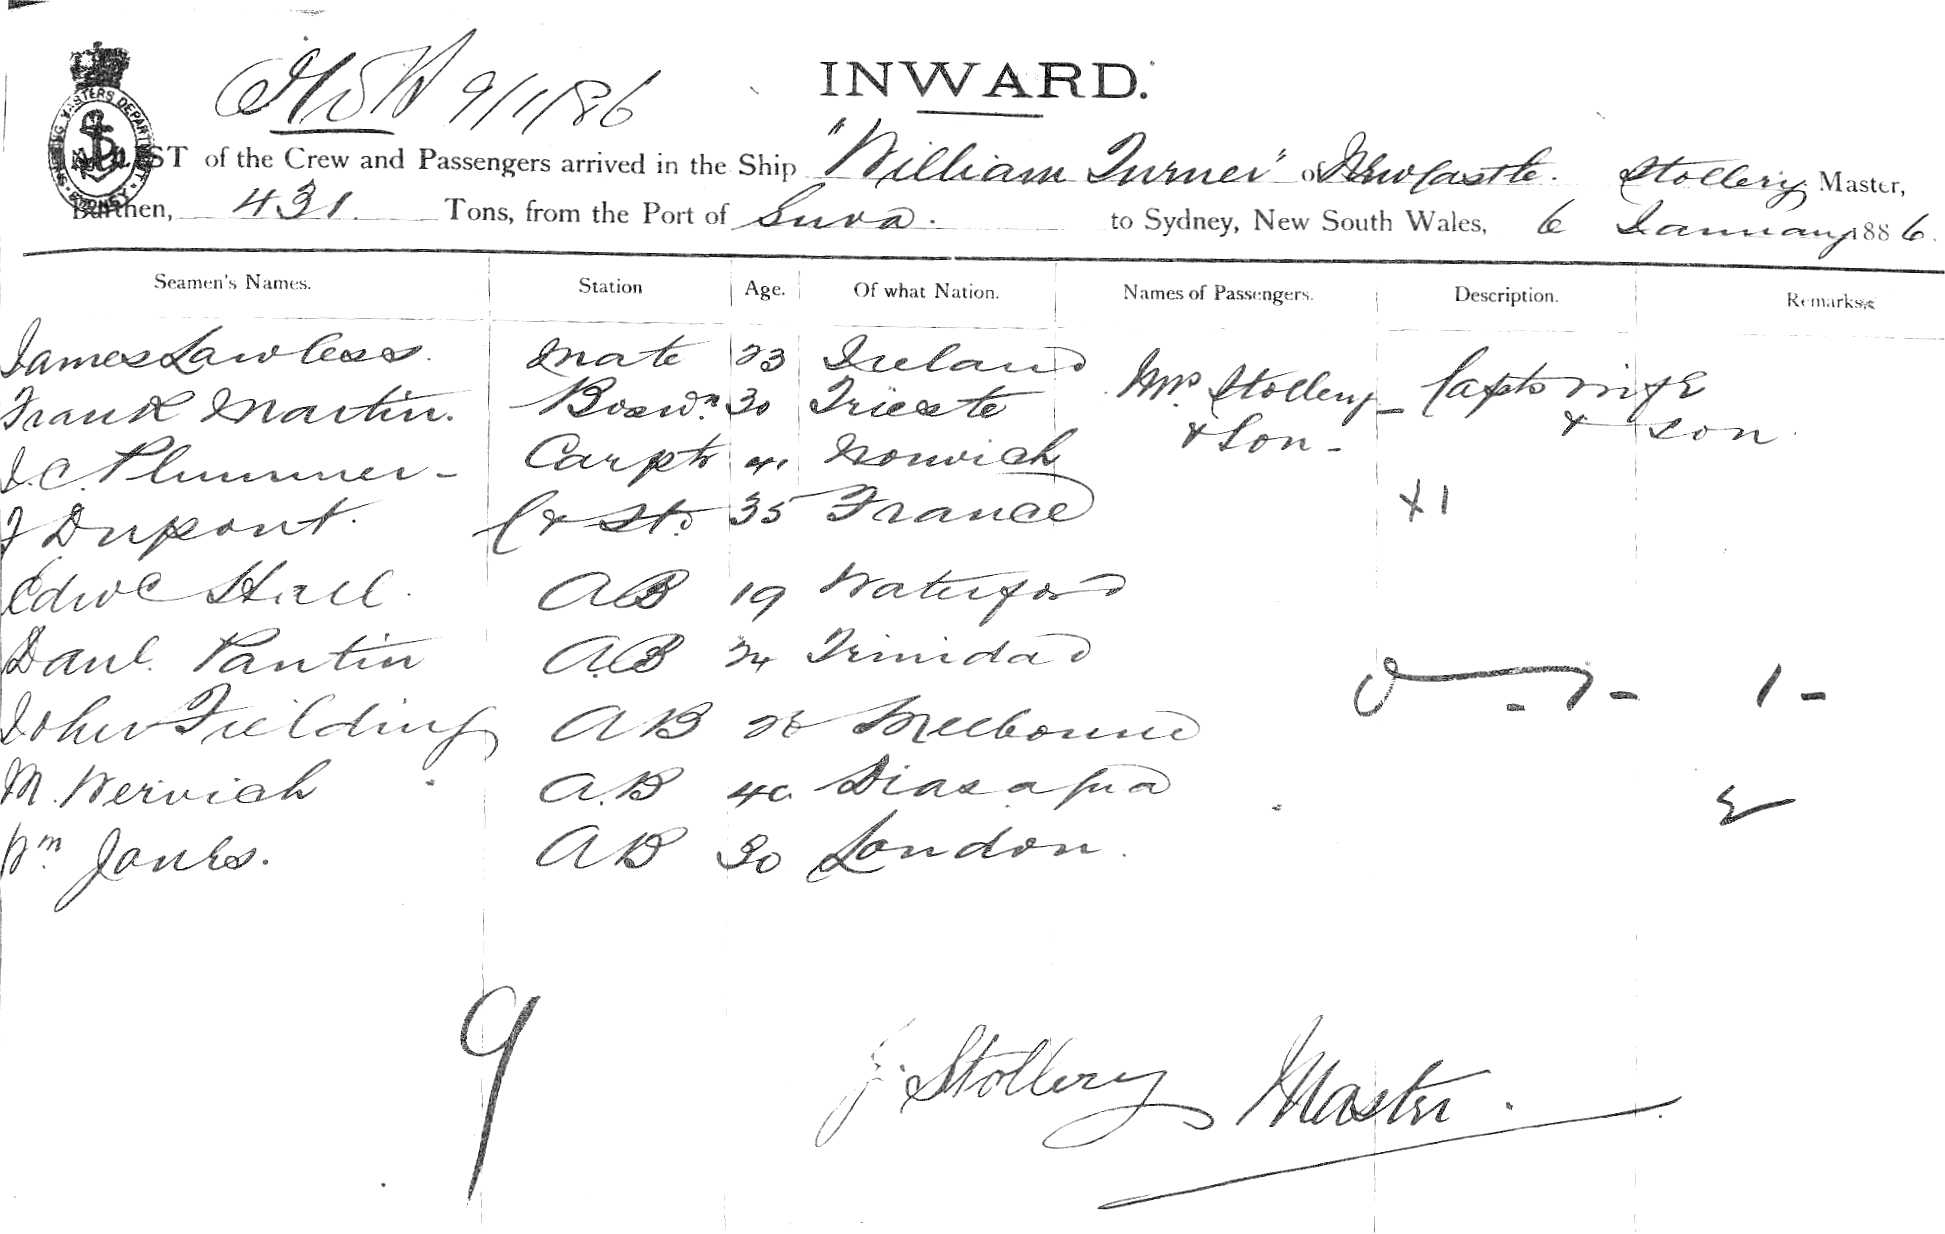 INWARD.
9/1/86
SHIPPING MASTERS DEPARTMENT SYDNEY
A LIST of the Crew and Passengers arrived in the Ship "William Turner" of Newcastle. Stollery Master,
Burthen, 431. Tons, from the Port of Suva. to Sydney, New South Wales, 6 January 1886.
Seamen's Names. Station Age. Of what Nation. Names of Passengers. Description. Remarks.
James Lawless. Mate 23 Ireland
Frank Martin. Boswn 30 Trieste Mrs Stollery - Capts wife
J.C. Plummer - Carptr 41 Norwich & Son - & son
J Dupont. C & Std. 35 France X 1
Edwd Hall. AB 19 Waterford
Danl. Pantin A.B 24 Trinidad
John Fielding AB 28 Melbourne 1 - 1 -
M. Wervich A.B 40 
Wm Jones. AB 30 London.
9
J. Stollery Master.